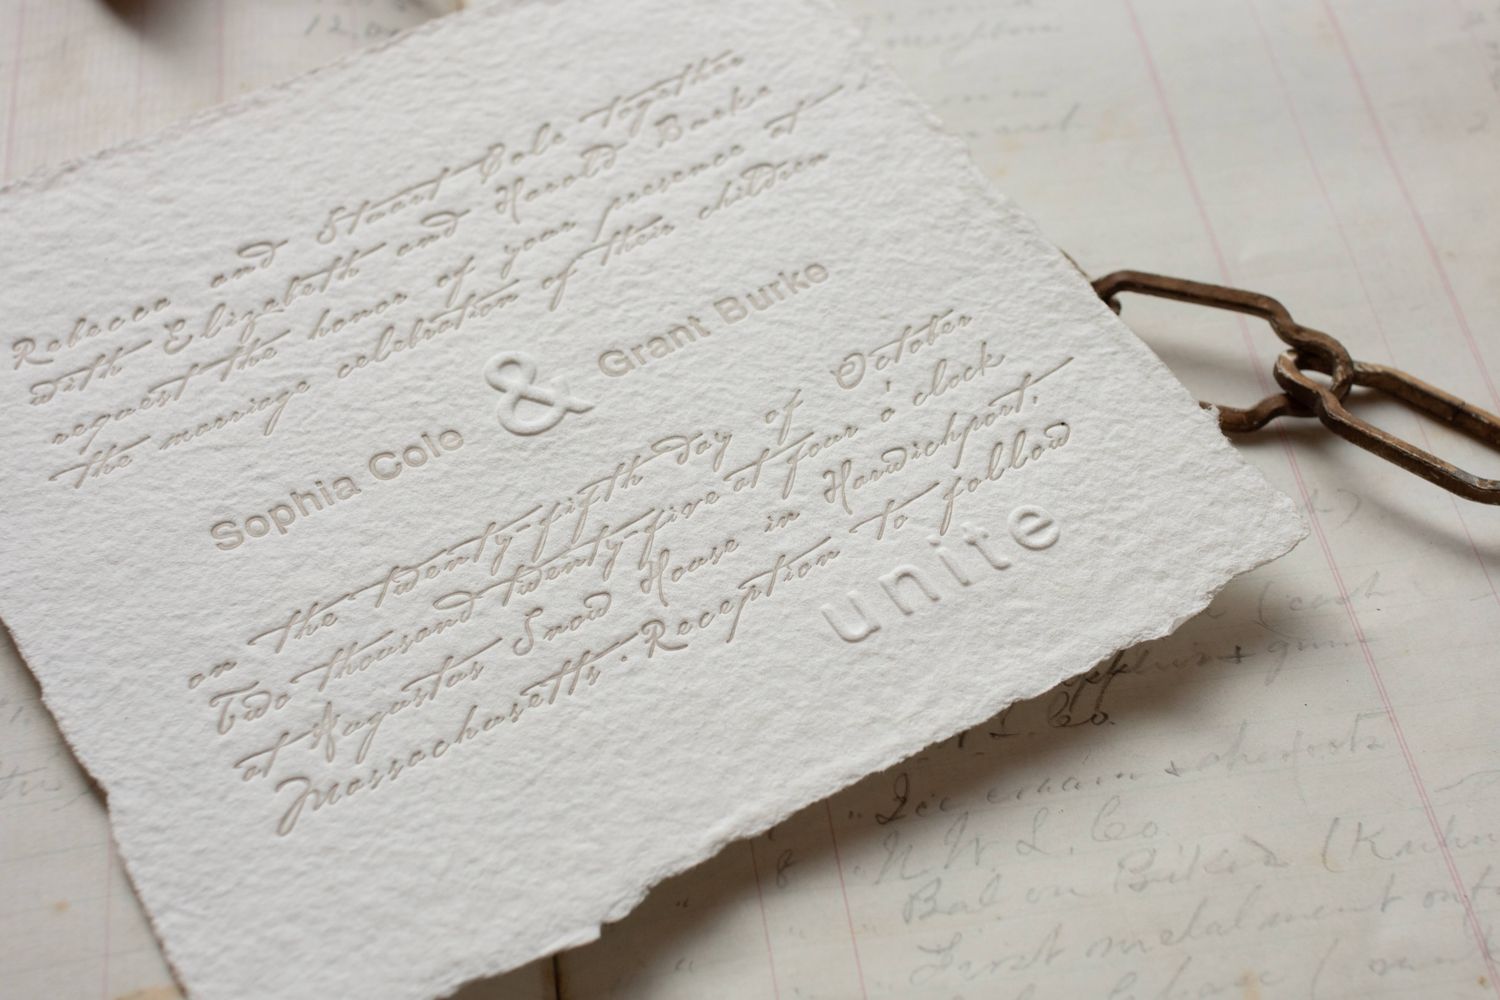 Rebecca and Stuart Cole together
with Elizabeth and Harold Burke
request the honor of your presence at
the marriage celebration of their children
Sophia Cole & Grant Burke
on the twenty-fifth day of October
Two thousand twenty-five at four o'clock
at Augustus Snow House in Harwichport,
Massachusetts. Reception to follow
unite
12.0
(cash
L. Co.
" Ice cream +
8 " N. W. L. Co.
" Bal on
" First